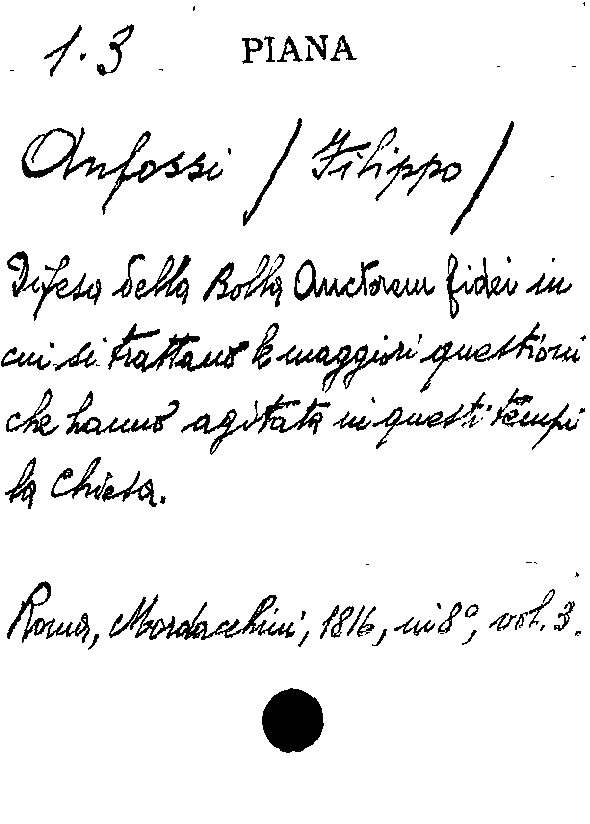 1.3 PIANA
Anfossi / Filippo /
Difesa della Bolla Auctorem fidei in
cui si trattano le maggiori questioni
che hanno agitata in questi tempi
la Chiesa.
Roma, Mordacchini, 1816, in 8°, vol. 3.